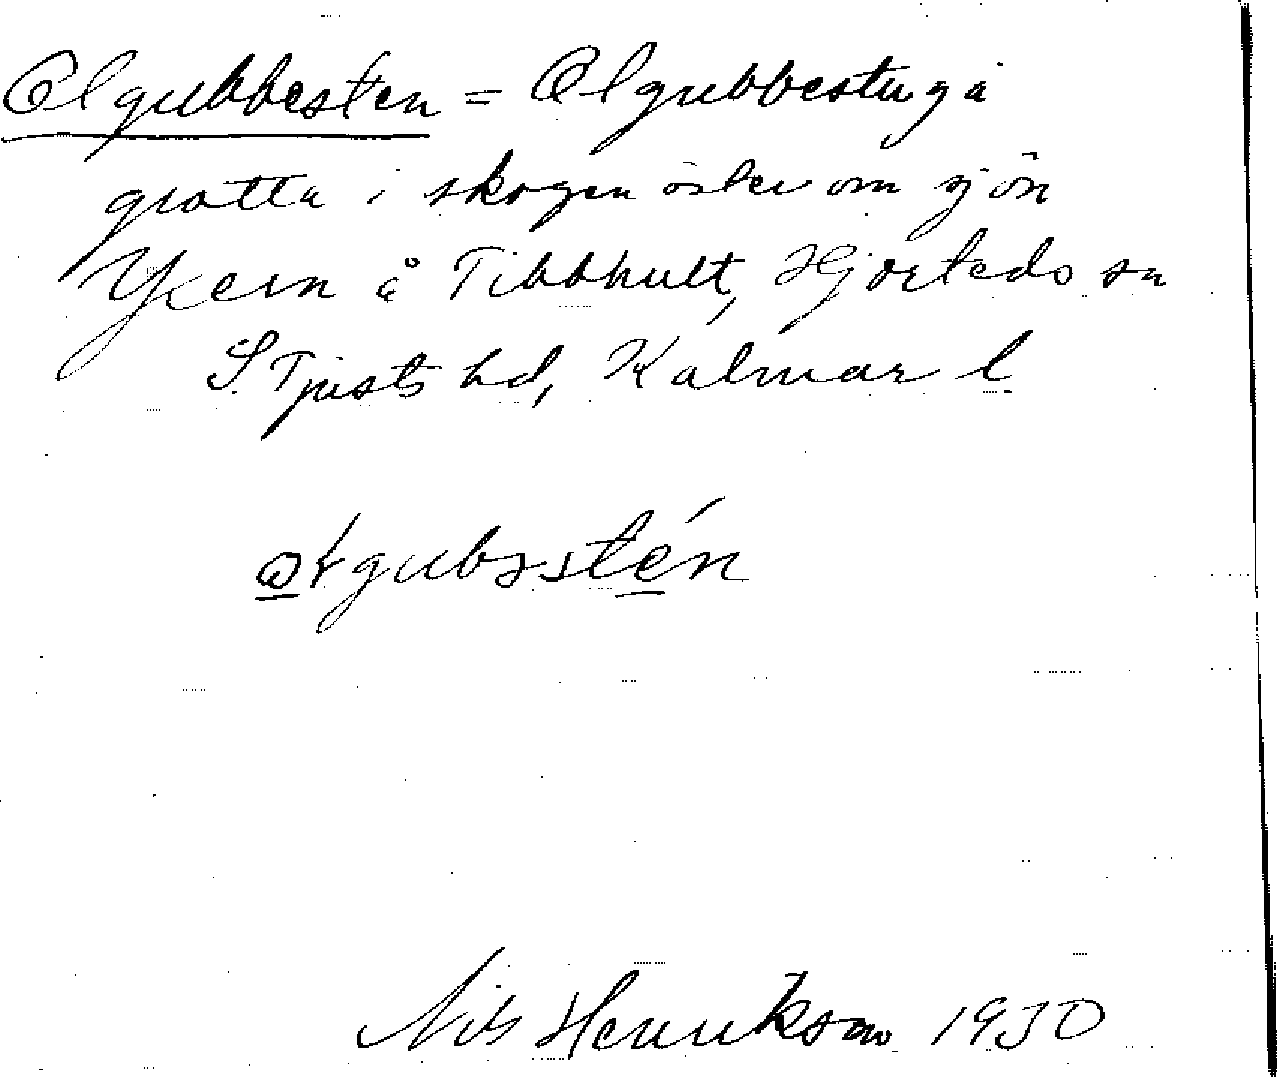 Olgubbesten = Olgubbestuga
grotta i skogen öster om sjön
Yxern å Tibbhult, Hjorteds sn
S Tjusts hd, Kalmar l
Nils Henrikson 1930